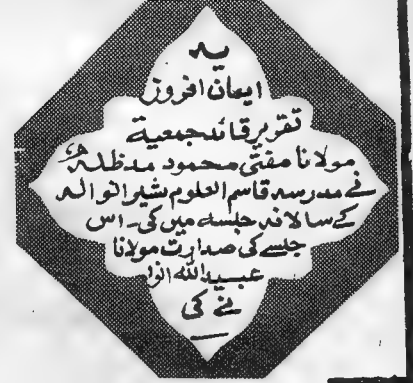 یہ
ایمان افروز
تقویر قائد جمعیة
مولانا مفتی محمود مدظلہ
نے مدرسہ قاسم العلوم شیرانوالہ
کے سالانہ جلسہ میں کی۔ اس
جلسے کی صدارت مولانا
عبیداللہ انور
نے کی